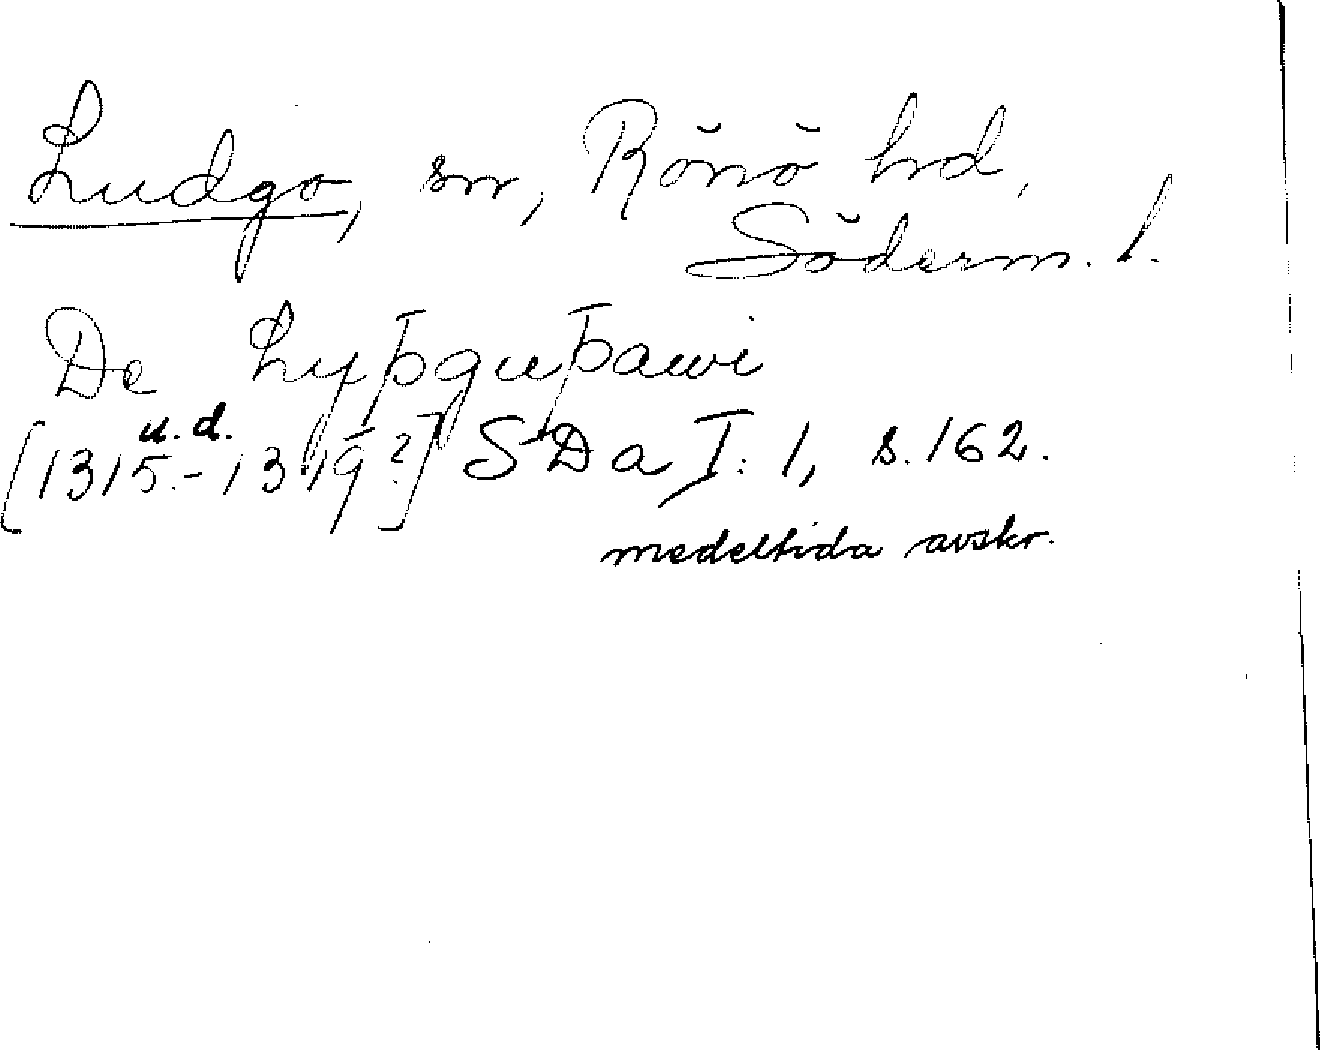 Ludgo, sn, Rönö hd,
Söderm. l.
De Lyþguþawi
u. d.
[1315.-1319?] SDa I: 1, s. 162.
medeltida avskr.